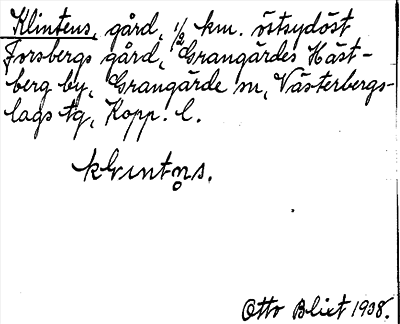 Klintens, gård, 1/2 km. östsydöst
Forsbergs gård, Grangärdes Häst-
berg by, Grangärde sn, Västerbergs-
lags tg, Kopp. l.
klintn̥s.
Otto Blixt 1938.